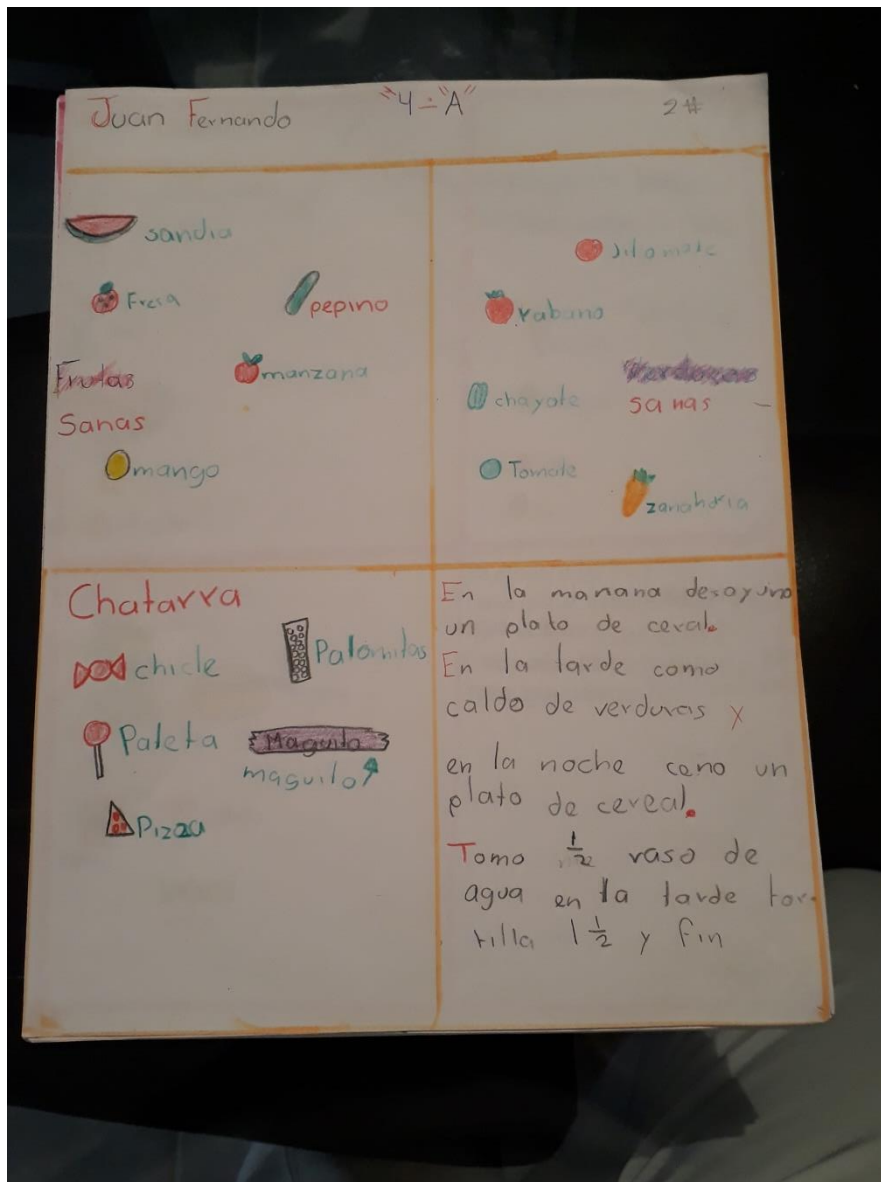 Juan Fernando "4-"A" 2#
sandia
Fresa
pepino
Frutas
manzana
Sanas
mango
Jitomate
rabano
chayote
sanas
Tomate
zanahoria
Chatarra
chicle
Palomitas
Paleta
Maguito
maguito
Pizza
En la manana desayuno
un plato de ceral.
En la tarde como
caldo de verduras y
en la noche ceno un
plato de cereal.
Tomo 1/2 vaso de
agua en la tarde tor-
tilla 1 1/2 y fin